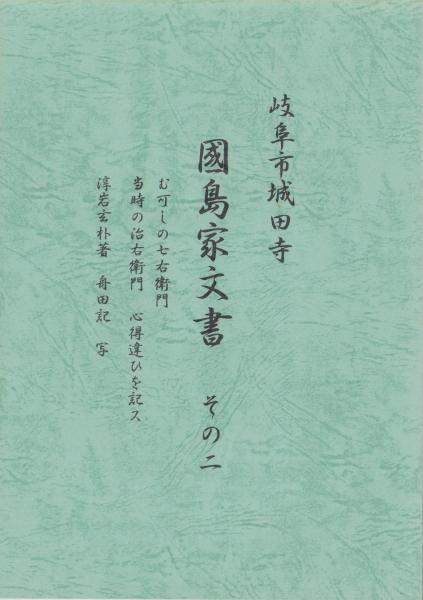 岐阜市城田寺
國島家文書 その二
む可しの七右衛門
当時の治右衛門 心得違ひを記ス
淳岩玄朴著 舟田記 写